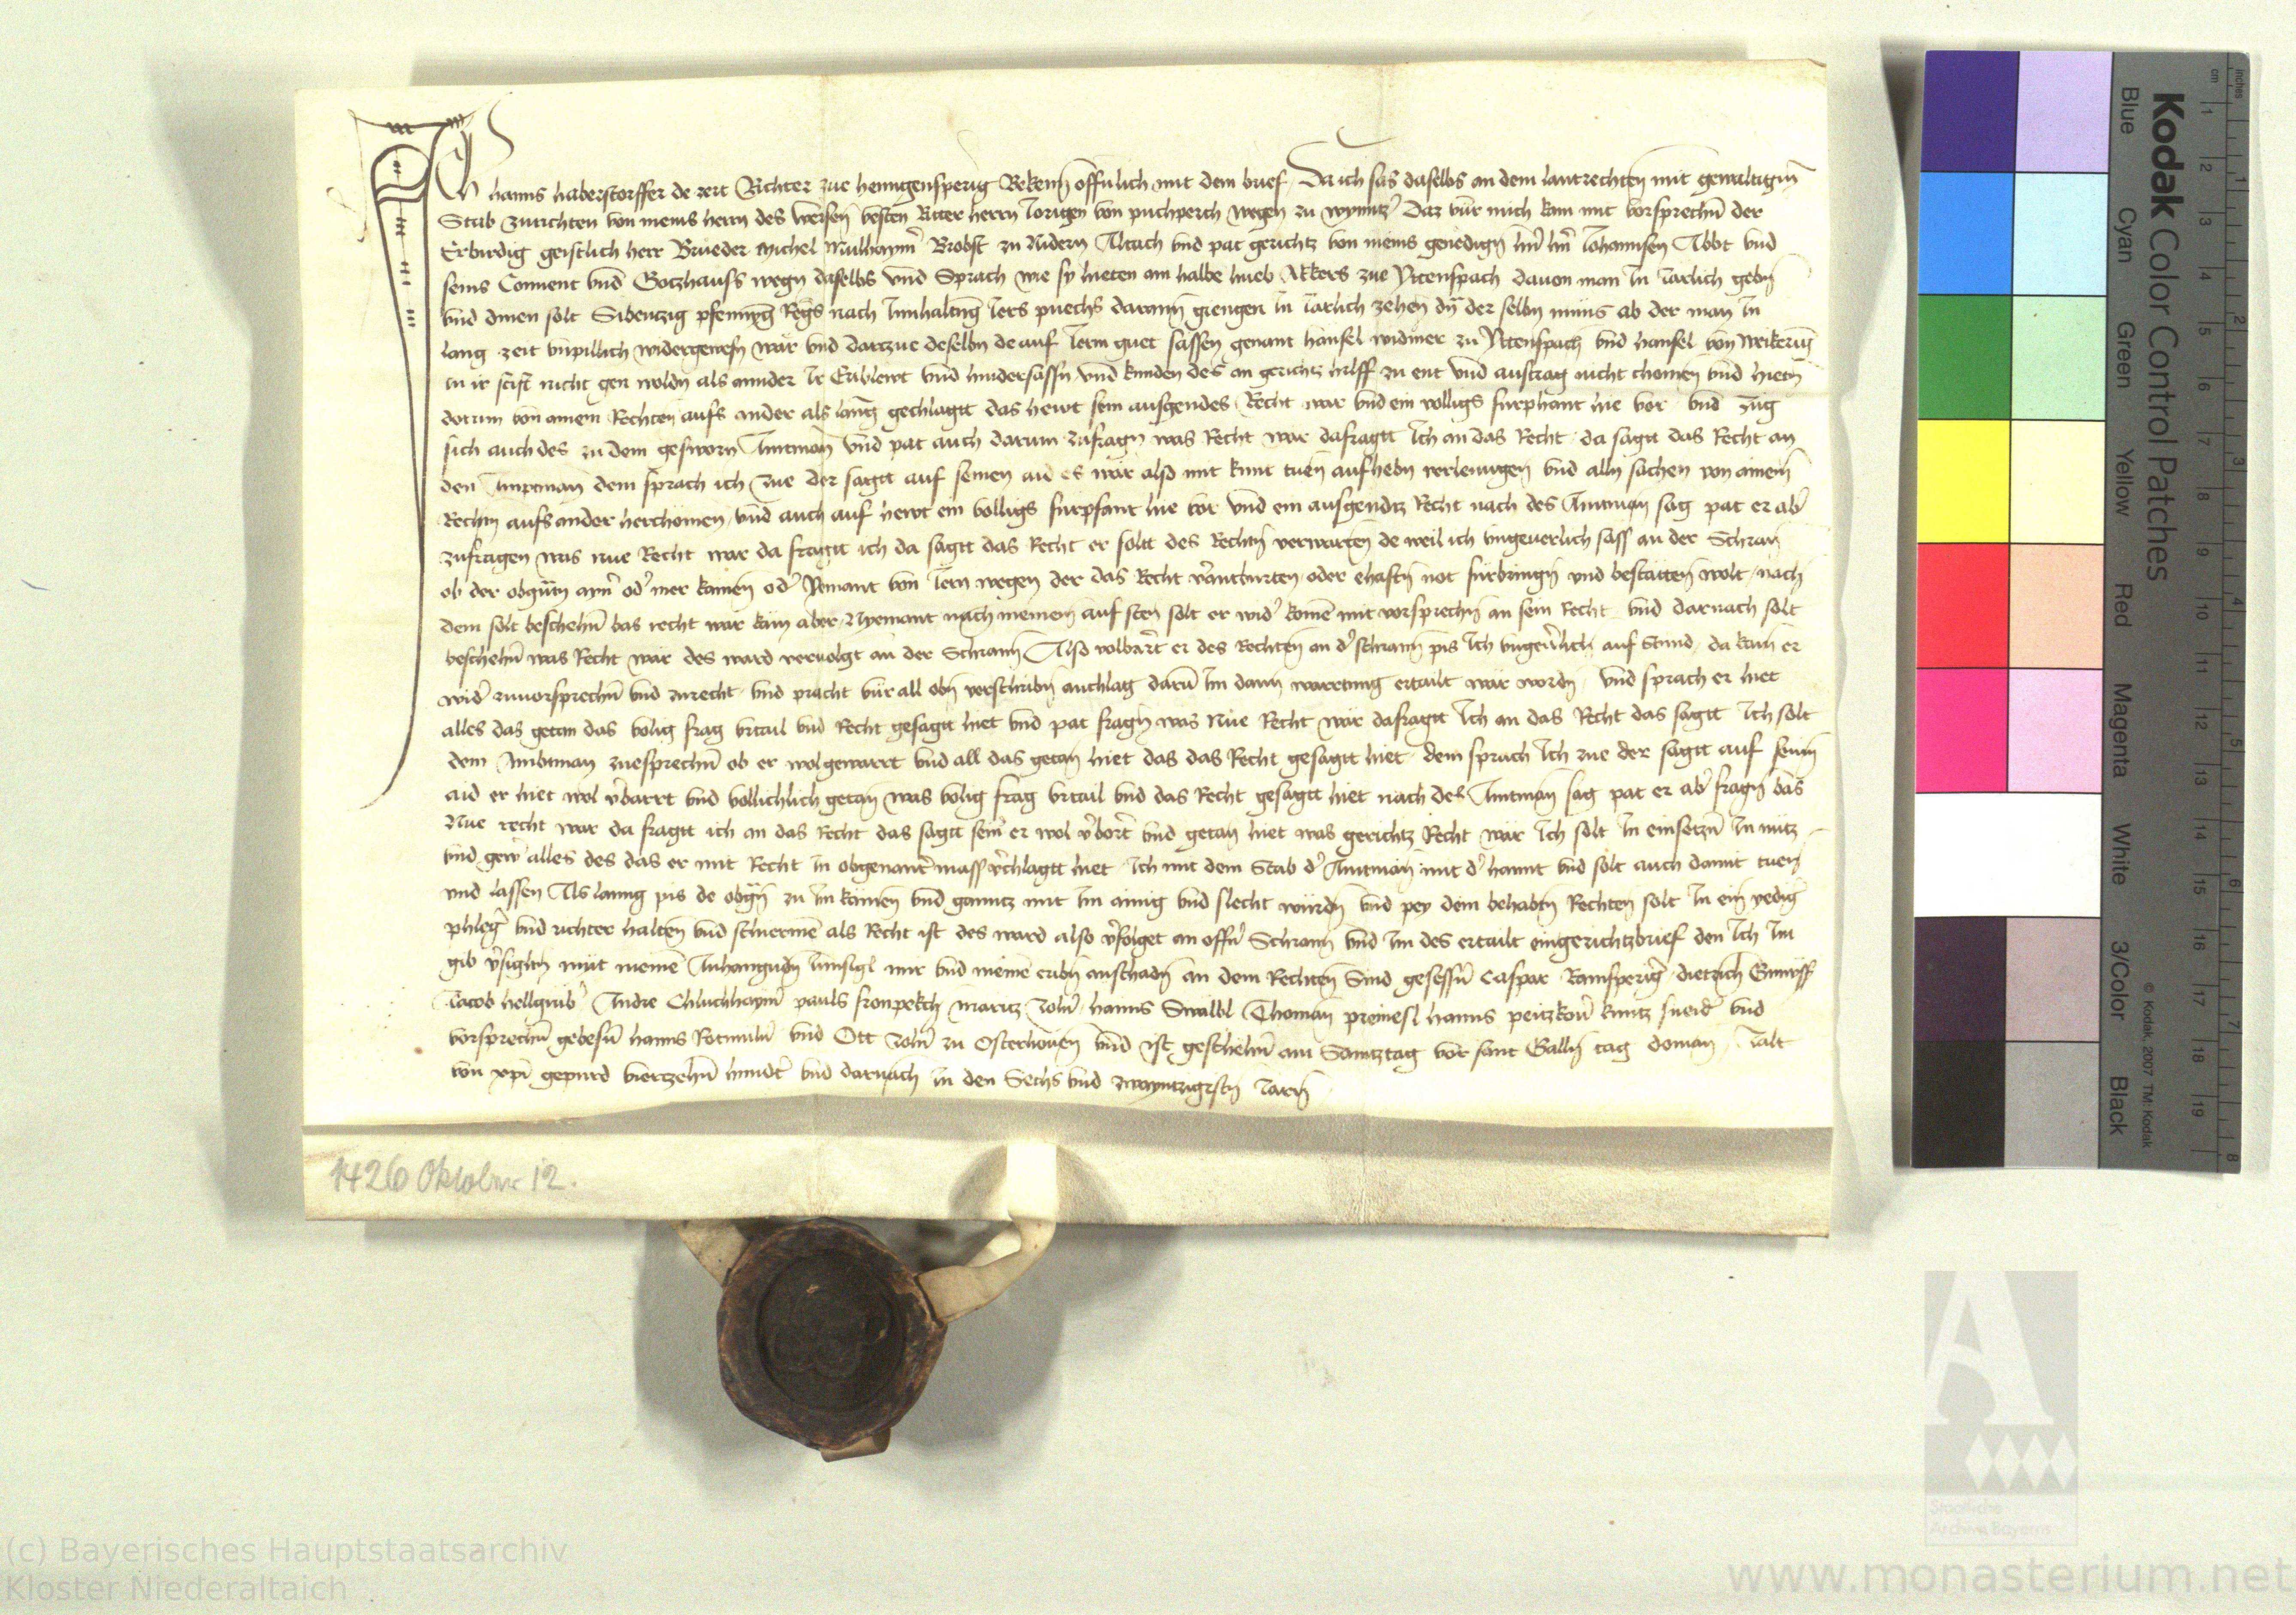 Ich hanns haberstorffer de zeit Richter zue henngensperig Bekenn offnlich mit dem brief Da ich sas daselbs an dem lantrechten mit gewaltigm
Stab zurichten von meins herrn des wersen vesten Ritter herrn Jorigen von puchperch wegen zu wynntz Daz vür mich kam mit vorsprechn der
Erbirdig geistlich herr Brueder Michel Mulhaymer Brobst zu Nidern Altach vnd pat gerichtz von meins genedign hrn hrn Johannsen Abbt vnd
seins Conuent vnd Gotzhauss wegn daselbs vnd Sprach wie sy hieten ain halbe hueb Akkers zue Ntenspach dauon man In Jarlich gebn
vnd dinen solt Sibentzig pfennyg Regs nach Innhaltng Jers puechs darann giengen In Jarlich zehen dn der selbn müns ab der man In
lang zeit vnpillich widergewesn wär vnd dartzue deselbn de auf Jerm guet sässen genant hänsel widmer zu Ntenspach vnd hansel von Weikering
in ir stift nicht gen woldn als annder Ir Erblewt vnd hindersässn vnd kunden des an gerichtz hilff zu ent vnd austrag nicht chomen vnd hietn
dorum von ainem Rechten aufs ander als lang gechlagtt das hewt sein ausgendes Recht wär vnd ein volligs fürphant hie vor vnd zug
sich auch des zu dem gesworn Amtman vnd pat auch darum zufragn was Recht wär dafragtt Ich an das Recht da sagtt das Recht an
den Amptman dem sprach ich zue der sagtt auf seinen aid es wär also mit kunt tuen aufhebn verlenngen vnd alln sachen von ainem
Rechtn aufs ander herchomen vnd auch auf hewt ein volligs fürpfant hie vor vnd ein ausgendtz Recht nach des Amtman sag pat er aber
zufragen was nue Recht wär da fragtt ich da sagtt das Recht er soltt des Rechtn verwarten de weil ich vngeuerlich säss an der Schran
ob der obgntn ayner oder mer kämen oder Nemant von Jern wegen der das Recht verantburten oder ehaftn not fürbringn vnd bestätten wolt nach
dem solt beschehn das recht wär käm aber Nyemant nach meinem auf sten solt er wider komen mit vorsprechn an sein Recht vnd darnach solt
beschehn was Recht wär des ward veruolgt an der Schrann Also volbart er des Rechten an der schrann pis Ich vngeuerlich auf Stund da kam er
wider zuuorsprechn vnd zurecht vnd pracht vür all obn verschribn anchlag darum Im dann warttung ertailt wär wordn vnd sprach er hiet
alles das getan das volig frag vrtail vnd Recht gesagtt hiet vnd pat fragn was Nue Recht wär dafragtt Ich an das Recht das sagtt Ich solt
dem Ambtman zuesprechn ob er wolgewartt vnd all das getan hiet das das Recht gesagtt hiet dem sprach Ich zue der sagtt auf seinn
aid er hiet wol verbartt vnd vollichlich getan was volig frag vrtail vnd das Recht gesagtt hiet nach des Amtman sag pat er aber fragn das
Nue recht wär da fragtt ich an das Recht das sagtt seind er wol verbort vnd getan hiet was gerichtz Recht wär Ich solt In einsetzn In nütz
vnd gewer alles des das er mit Recht In obgenanter mass verchlagtt hiet Ich mit dem Stab der Amtman mit der hannt vnd solt auch damit tuen
vnd lassen Als lanng pis de obgn zu Im kämen vnd ganntz mit Im ainig vnd slecht würdn vnd pey dem behabtn Rechten solt In ein yedig
phleger vnd richter halten vnd schiermen als Recht ist des ward also verfolget an offner Schrann vnd Im des ertailt eingerichtzbrief den Ich Im
gib versigltn mit meinem Anhangndn Innsigl mir vnd meinen eribn anschadn an dem Rechten Sind gesessn Caspar Ramsperiger dietrich Ginnoff
Jacob hellgruber Andre Chluchhaymer pauls fronpekch Maritz zoller hanns Swalbl Thoman preinesl hanns peitzkouer kuntz sneider vnd
vorsprechn gebesn hanns Rotmuler vnd Ott zoller zu Osterhouen vnd ist geschehn am Samtztag vor sant Galln tag doman Zalt
von xpi gepurd viertzehn hundert vnd darnach In den Sechs vnd zwayntzigistn Jarn
1426 Oktober 12.
Kodak Color Control Patches
Blue Cyan Green Yellow Red Magenta White 3/Color Black
© Kodak, 2007 TM: Kodak
cm 1 2 3 4 5 6 7 8 9 10 11 12 13 14 15 16 17 18 19
inches 1 2 3 4 5 6 7 8
Staatliche
Archive Bayerns
(c) Bayerisches Hauptstaatsarchiv
Kloster Niederaltaich
www.monasterium.net